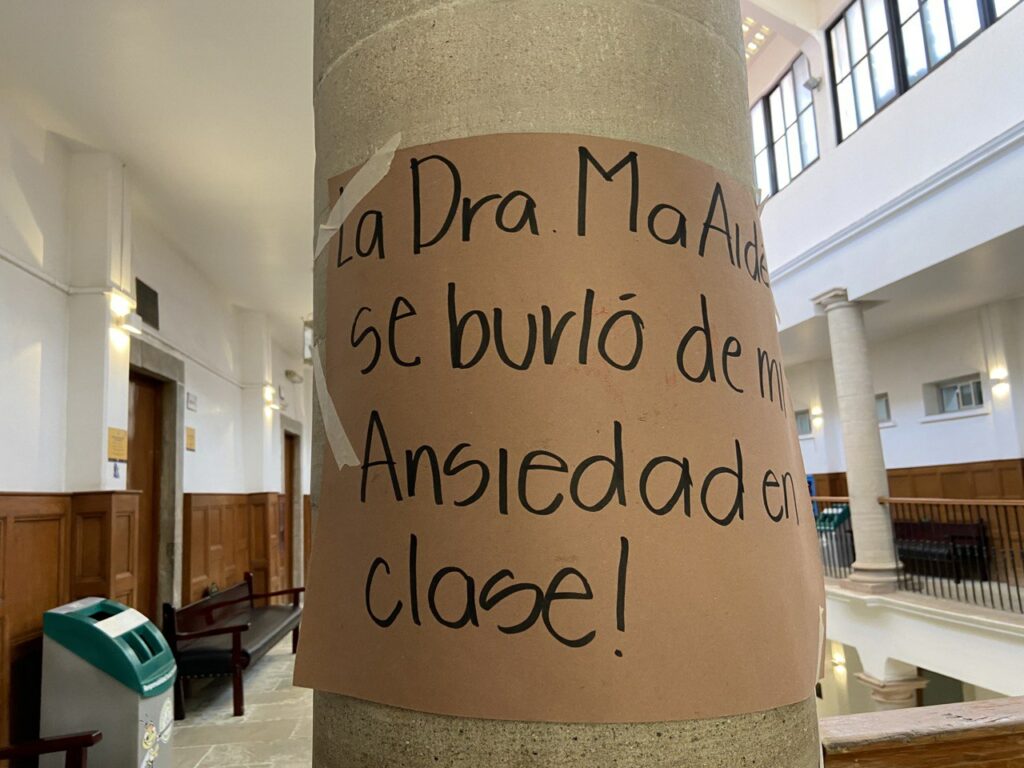 La Dra. Ma Alde
se burló de mi
Ansiedad en
clase!